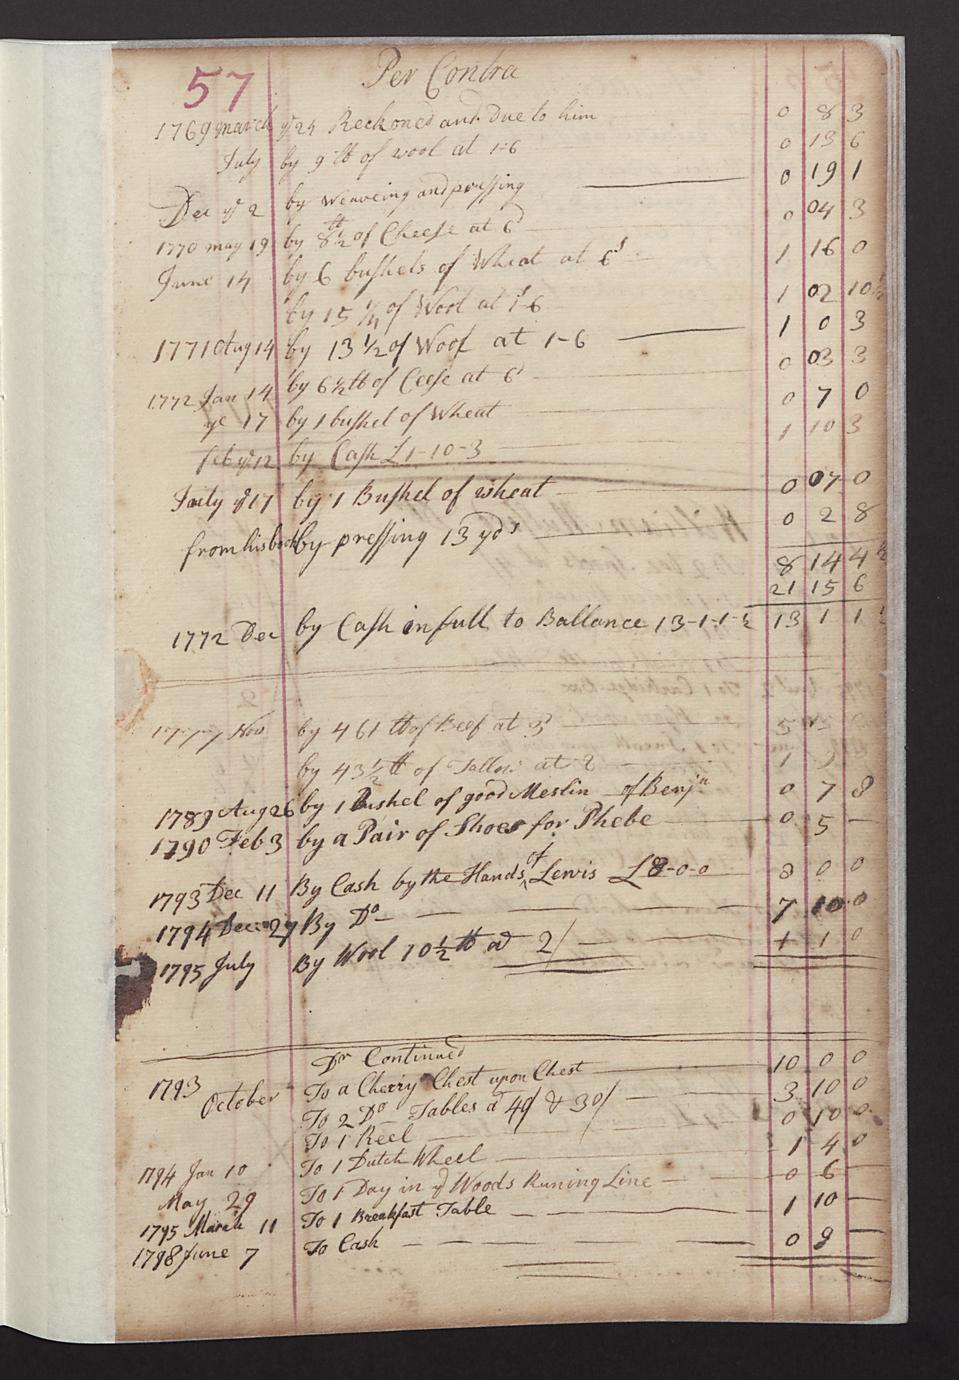 57 Per Contra
1769 march ye 24 Reckoned and Due to him 0 8 3
July by 9 lb of wool at 1-6 0 13 6
Dec ye 2 by Weaveing and pressing 0 19 1
1770 may 19 by 8½ lb of Cheese at 6d 0 04 3
June 14 by 6 bushels of Wheat at 6s 1 16 0
by 15 1/4 of Wool at 1s-6 1 02 10½
1771 Aug 14 by 13 1/2 of Wool at 1-6 1 0 3
1772 Jan 14 by 6½ lb of Ceese at 6d 0 03 3
ye 17 by 1 bushel of Wheat 0 7 0
feb ye 12 by Cash £1-10-3 1 10 3
July ye 17 by 1 Bushel of wheat 0 07 0
from his book by pressing 13 yds 0 2 8
8 14 4½
21 15 6
1772 Dec by Cash in full to Ballance 13-1-1½ 13 1 1½
Nov by 461 lb of Beef at 3d 5
by 43½ lb of Tallow at 1
1789 Aug 26 by 1 Bushel of good Meslin of Benjn 0 7 8
1790 Feb 3 by a Pair of Shoes for Phebe 0 5 —
1793 Dec 11 By Cash by the Hands of Lewis £8-0-0 8 0 0
1794 Dec 27 By Do 7 10 0
1795 July By Wool 10½ lb at 2/ 1 1 0
Dr Continued
1793 October To a Cherry Chest upon Chest 10 0 0
To 2 Do Tables a 40/ & 30/ 3 10 0
To 1 Reel 0 10 0
1794 Jan 10 To 1 Dutch Wheel 1 4 0
May 29 To 1 Day in ye Woods Runing Line 0 6 —
1795 March 11 To 1 Breakfast Table 1 10 —
1798 June 7 To Cash 0 9 —